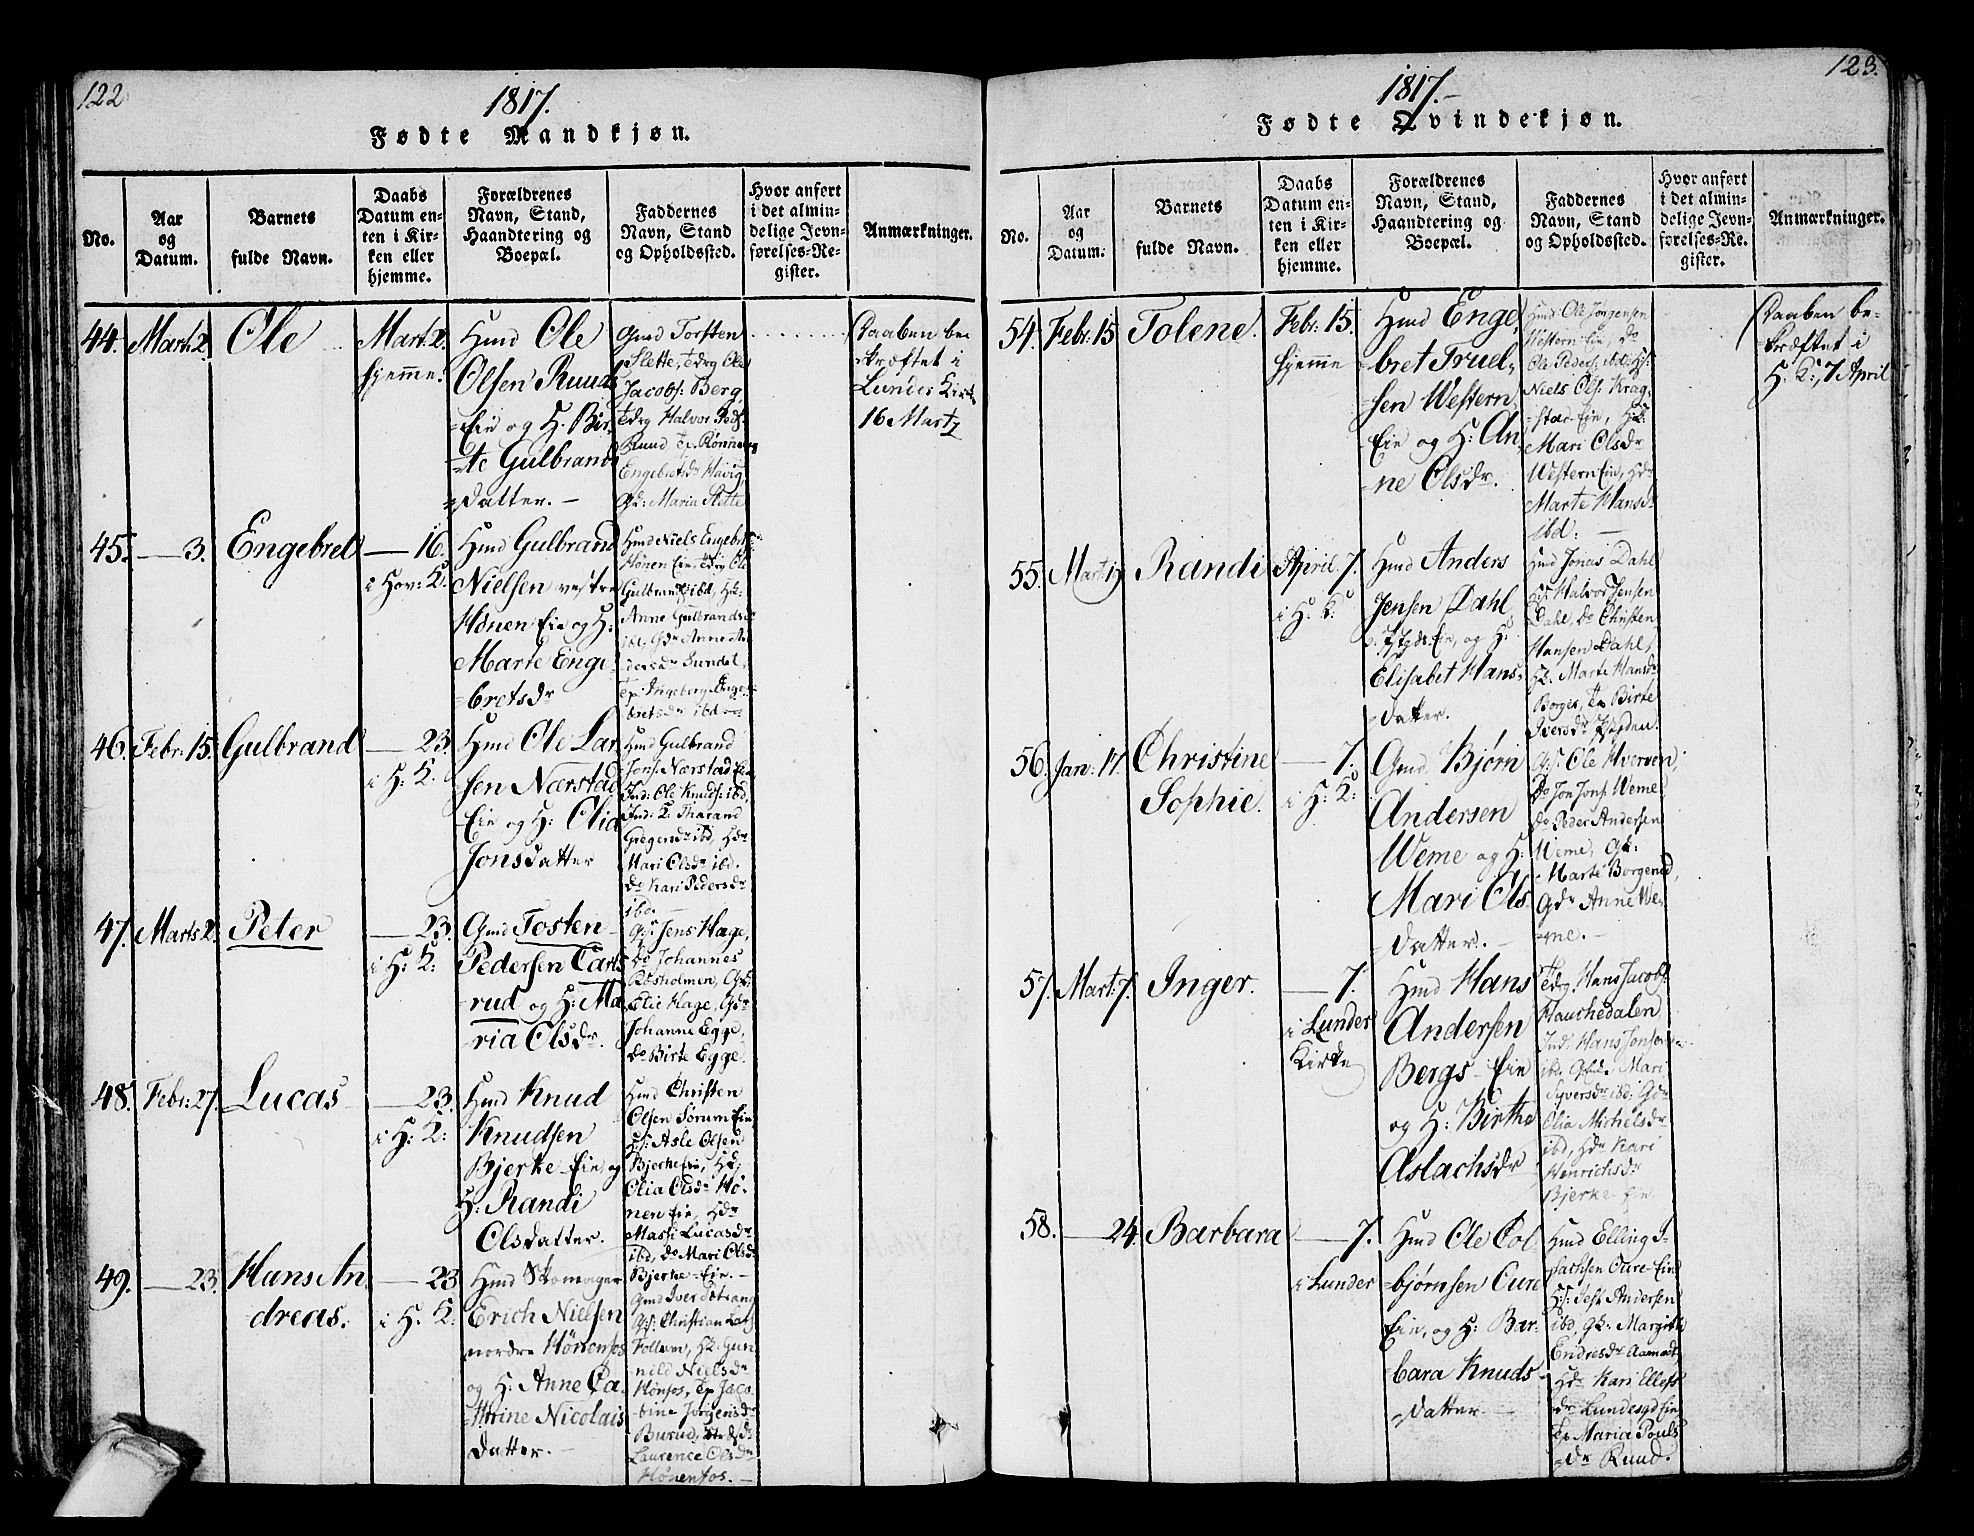 122
1817.
Fødte Mandkjøn.
No.
Aar
og
Datum.
Barnets
fulde Navn.
Daabs
Datum en-
ten i Kir-
ken eller
hjemme.
Forældrenes
Navn, Stand,
Haandtering og
Boepæl.
Faddernes
Navn, Stand
og Opholdssted.
Hvor anført
i det almin-
delige Jevn-
førelses-Re-
gister.
Anmærkninger.
44.
Mart. 2
Ole
Mart. 2.
hjemme.
Hmd Ole
Olsen Ruuds
-Eie og H. Bir-
te Gulbrands
-datter. -
Gmd Torsten
Slette, Tdrg Ole
Jacobs: Berg,
Tdrg Halvor Ped:
Ruud Tp. Rønnaug
Engebretsdr Havig,
Gd: Maria Slette
Daaben be-
kræftet i
Lunder Kirke
16 Martz
45.
— 3.
Engebret
— 16.
i Hov: K.
Hmd Gulbrand
Nielsen vestre
Hønen Eie og H:
Marte Enge-
-bretsdr
Hmd Niels Engebr:
Hønen Eie, Tdrg Ole
Gulbrands: ibd, HK:
Anne Gulbrandsdr
ibd, Gdr Anne An-
dersdr Sundal,
Tp. Ingeborg Enge-
bretsdr ibd —
46.
Febr: 15.
Gulbrand
— 23.
i H: K.
Hmd Ole Lar-
sen Nærstad
-Eie og H: Olia
Jonsdatter
Hmd Gulbrand
Jons: Nærstad Eie
Ind: Ole Knuds: ibd,
Ind: K. Tharand
Gregersdr ibd, Hdr
Mari Olsdr ibd.
do Kari Pedersdr
ibd. —
47.
Marts 2.
Peter
— 23.
i H: K:
Gmd Tosten
Pedersen Carls-
rud og H: Ma-
ria Olsdr.
Gs: Jens Hage,
do Johannes
Røsholmen, GK:
Elie Hage, Gdr
Johanne Egge,
do Birte Egge.
48.
Febr: 27.
Lucas
— 23.
i H: K:
Hmd Knud
Knudsen
Bjerke-Eie, og
H: Randi
Olsdatter.
Hmd Christen
Olsen Sørum Eie
HS: Asle Olsen
Bjerke Eie, HK
Olia Olsdr Hø-
nen Eie, Hdr
Massi Lucasdr
ibd, do Mari Olsdr
Bjerke-Eie. —
49.
— 23.
Hans An-
dreas.
— 23
i H: K:
Hmd Skomager
Erich Nielsen
nordre Hønenfos
og H: Anne Ca-
-thrine Nicolais
datter. —
Gmd Iver
Gs: Christian Lars:
Follum, HK. Gun-
nild Nielsdr
Hønfos, Tp Jaco-
-bine Jørgensdr
Burud,
Laurence Olsdr
Hønenfos. —
123.
1817. —
Fødte Qvindekjøn.
No.
Aar
og
Datum.
Barnets
fulde Navn.
Daabs
Datum en-
ten i Kir-
ken eller
hjemme.
Forældrenes
Navn, Stand,
Haandtering og
Boepæl.
Faddernes
Navn, Stand
og Opholdssted.
Hvor anført
i det almin-
delige Jevn-
førelses-Re-
gister.
Anmærkninger.
54.
Febr: 15
Tolene.
Febr: 15.
hjemme
Hmd Enge-
bret Truel-
sen Western-
-Eie og H: An-
ne Olsdr.
Hmd Ole Jørgensen
Western-Eie, do
Ole Peders:
Niels Ols: Krag-
stad-Eie, HK:
Mari Olsdr
Western Eie, Hdr
Marte Hansdr
ibd: —
Daaben be-
kræftet i
H. K: 7 April
55.
Mart: 19
Randi
April 7.
i H. K.
Hmd Anders
Jensen Dahl,
Eie, og H:
Elisabet Hans-
-datter.
Hmd Jonas Dahl
HS: Halvor Jensen
Dahl, do Christen
Hansen Dahl,
HK. Marte Hansdr
Borger, Tp Birte
Iversdr
56.
Jan: 17.
Christine
Sophie.
— 7.
i H: K:
Gmd. Bjørn
Andersen
Weme og H:
Mari Ols-
-datter. —
Gs: Ole Hverven,
do Jon Jons: Weme
do Peder Andersen
Weme, GK:
Marte Borgerud,
Gdr Anne We-
-me. —
57.
Mart: 7.
Inger.
— 7.
i Lunder
Kirke
Hmd Hans
Andersen
Bergs-Eie
og H: Birthe
Aslachsdr
Tdrg. Hans Jacobs:
Hauchedalen
Ind: Hans Jonsen
ibd, Mari
Syversdr ibd, Gdr
Olia Michelsdr
ibd, Hdr Kari
Henrichsdr
Bjerke-Eie.
58.
— 24.
Barbara
— 7.
i Lunder
Hmd Ole Col-
-bjørnsen Cure
Eie, og H: Bar-
-bara Knuds-
-datter. —
Hmd Elling I-
sachsen Cure-Eie
HS: Andersen
ibd, GK: Margit
Endresdr Aamodt,
Hdr Kari Ellefs
dr Lundesgd Eie
Tp Maria Pouls
-dr Ruud.